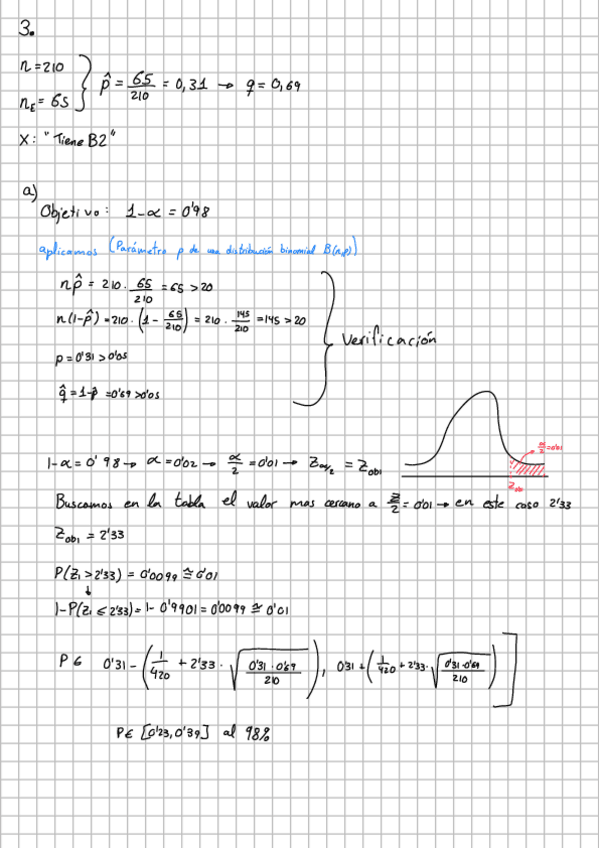 3.
n = 210
n_E = 65
p̂ = 65/210 = 0,31 → q = 0,69
X: "Tiene B2"
a)
Objetivo: 1-α = 0'98
aplicamos (Parámetro p de una distribución binomial B(n,p))
n p̂ = 210 · 65/210 = 65 > 20
n(1-p̂) = 210 · (1 - 65/210) = 210 · 145/210 = 145 > 20
p = 0'31 > 0'05
q̂ = 1-p̂ = 0'69 > 0'05
Verificación
1-α = 0'98 → α = 0'02 → α/2 = 0'01 → Z_α/2 = Z_0'01
α/2 = 0'01
Z_0'01
Buscamos en la tabla el valor mas cercano a α/2 = 0'01 → en este caso 2'33
Z_0'01 = 2'33
P(Z > 2'33) = 0'0099 ≅ 0'01
↓
1-P(Z ≤ 2'33) = 1- 0'9901 = 0'0099 ≅ 0'01
P ∈ 0'31 - (1/420 + 2'33 · √(0'31 · 0'69/210)), 0'31 + (1/420 + 2'33 · √(0'31 · 0'69/210))]
P ∈ [0'23, 0'39] al 98%